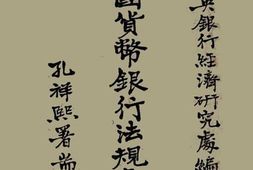 央銀行經濟研究處編
國貨幣銀行法規
孔祥熙署耑